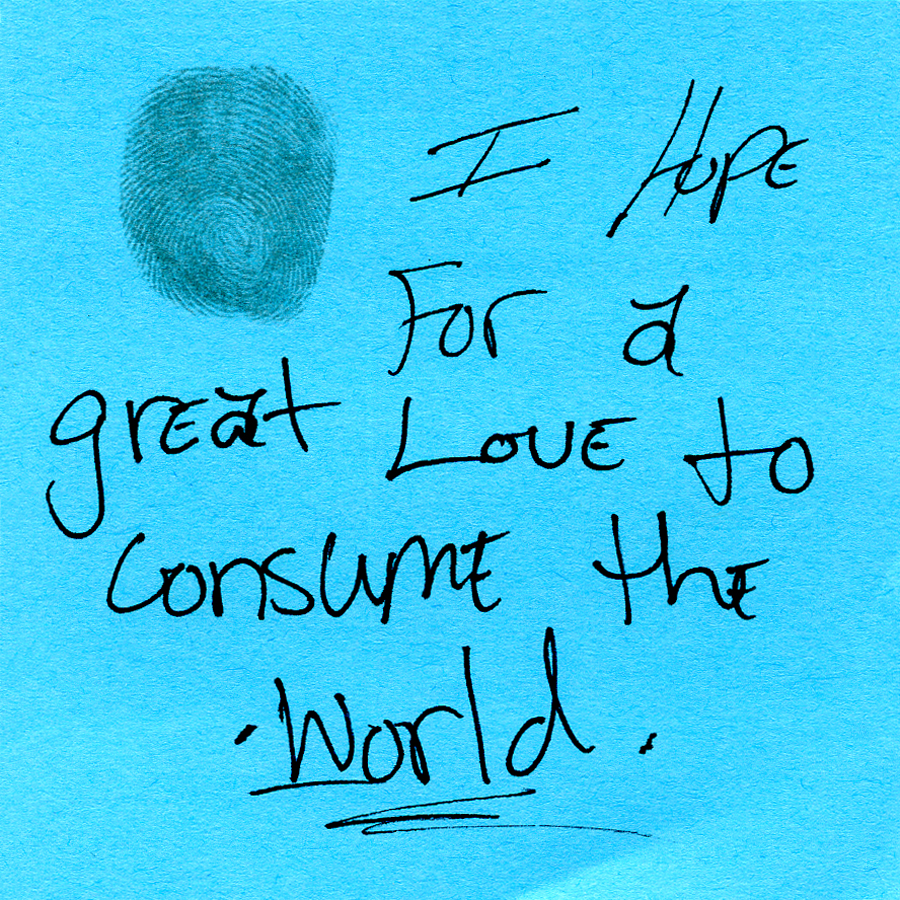 I HOPE
For a
great LOVE to
consume the
World.